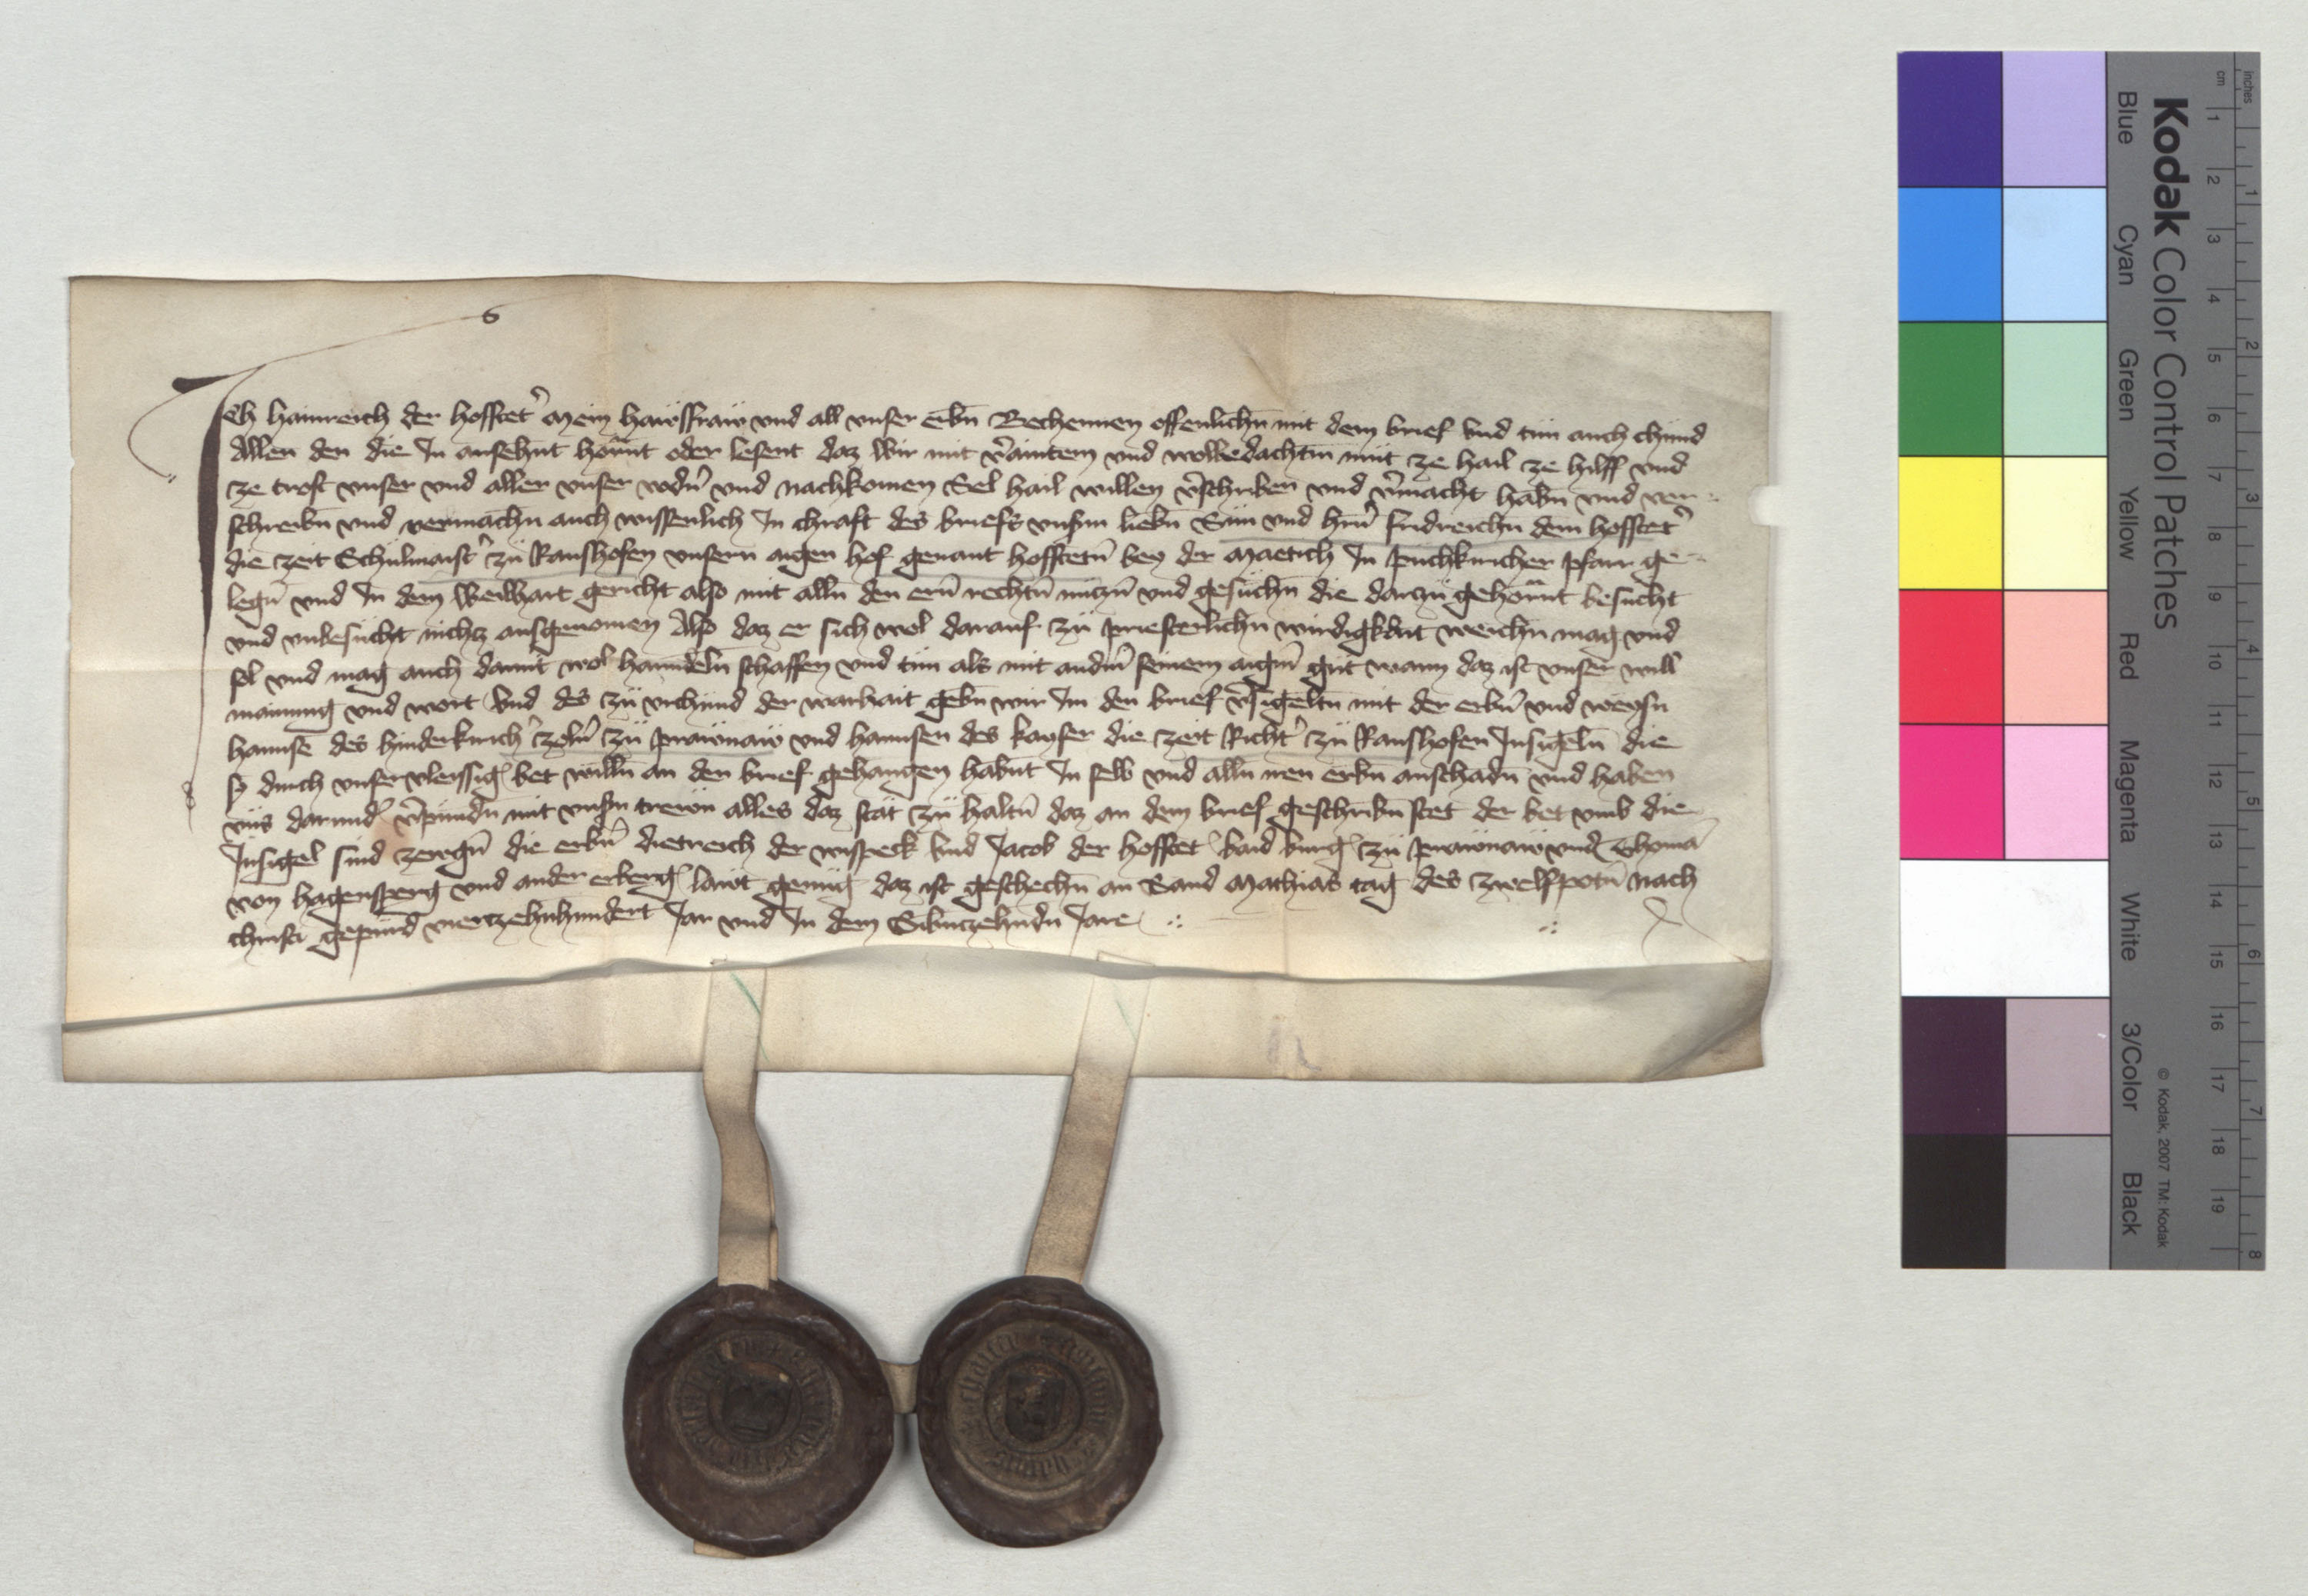 Ich hainreich der hofstet' Mein hawsfraw und all unser erbn Bechennen offenlichn mit dem brief Und tun auch chund
Allen den die In ansehnt hornt oder lesent daz Wir mit v'aintem und wolbedachtm mut ze hail ze hilff und
ze trost unser und aller unser vodn' und nachkomen Sel hail willen v'schriben und v'macht habn und ver
schreibn und vermachn auch wissenlich In chraft des briefs unsm liebn Sun und hrn' fridreichn dem hofstet'
die zeit Schulmaist' zu Ranshofen unsern aigen hof genant hofstetn bey der Maetich In puchkiricher pfarr ge
legn und In dem Weilhart gericht also mit alln den ern rechtn nuczn und gesuchn die darzu gehornt besucht
und unbesucht nichcz ausgenomen Also daz er sich wol darauf zu priesterlichn wirdigkait weichn mag und
sol und mag auch damit wol hanndeln schaffen und tun als mit andm seinem aigm gut wann daz ist unser will
mainung und wort Und des zu urchund der warhait gebn wir Im den brief v'sigeltn mit der erbn' und weysn
hannse des hinderkirich' zoln' zu prawnaw und hannsen des kayser die zeit Richt' zu Ranshofen Insigeln die
sy durch unser vleissig' bet willn an den brief gehangen habnt In selb und alln iren erbn anschadn und haben
uns darund' v'pundn mit unsn trewn alles daz stat zu haltn daz an dem brief geschribn stet der bet umb die
Insigel sind zewgn die erbn' dietreich der wispeck Und Jacob der hofstet' baid burg' zu prawnaw und Thoma
von hagensperg und ander erberg' lawt genug daz ist geschechn an Sand Mathias tag des zwelfpotn nach
christi gepurd vierzehnhundert Jar und In dem Sibnczehndn Jare
Kodak Color Control Patches
Blue Cyan Green Yellow Red Magenta White 3/Color Black
© Kodak, 2007 TM: Kodak
cm 1 2 3 4 5 6 7 8 9 10 11 12 13 14 15 16 17 18 19
inches 1 2 3 4 5 6 7 8